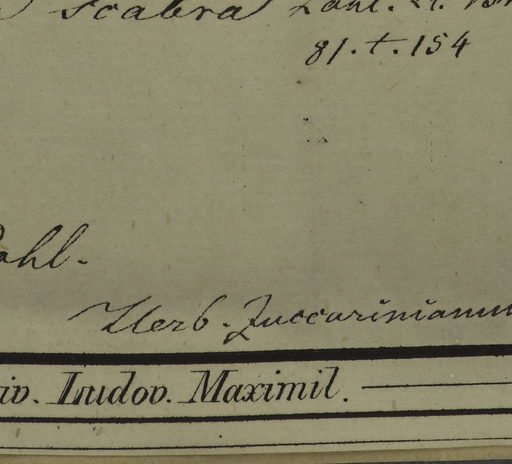 scabra Vahl.
81. t. 154
ahl.
Herb. Zuccarinianum
iv. Ludov. Maximil.